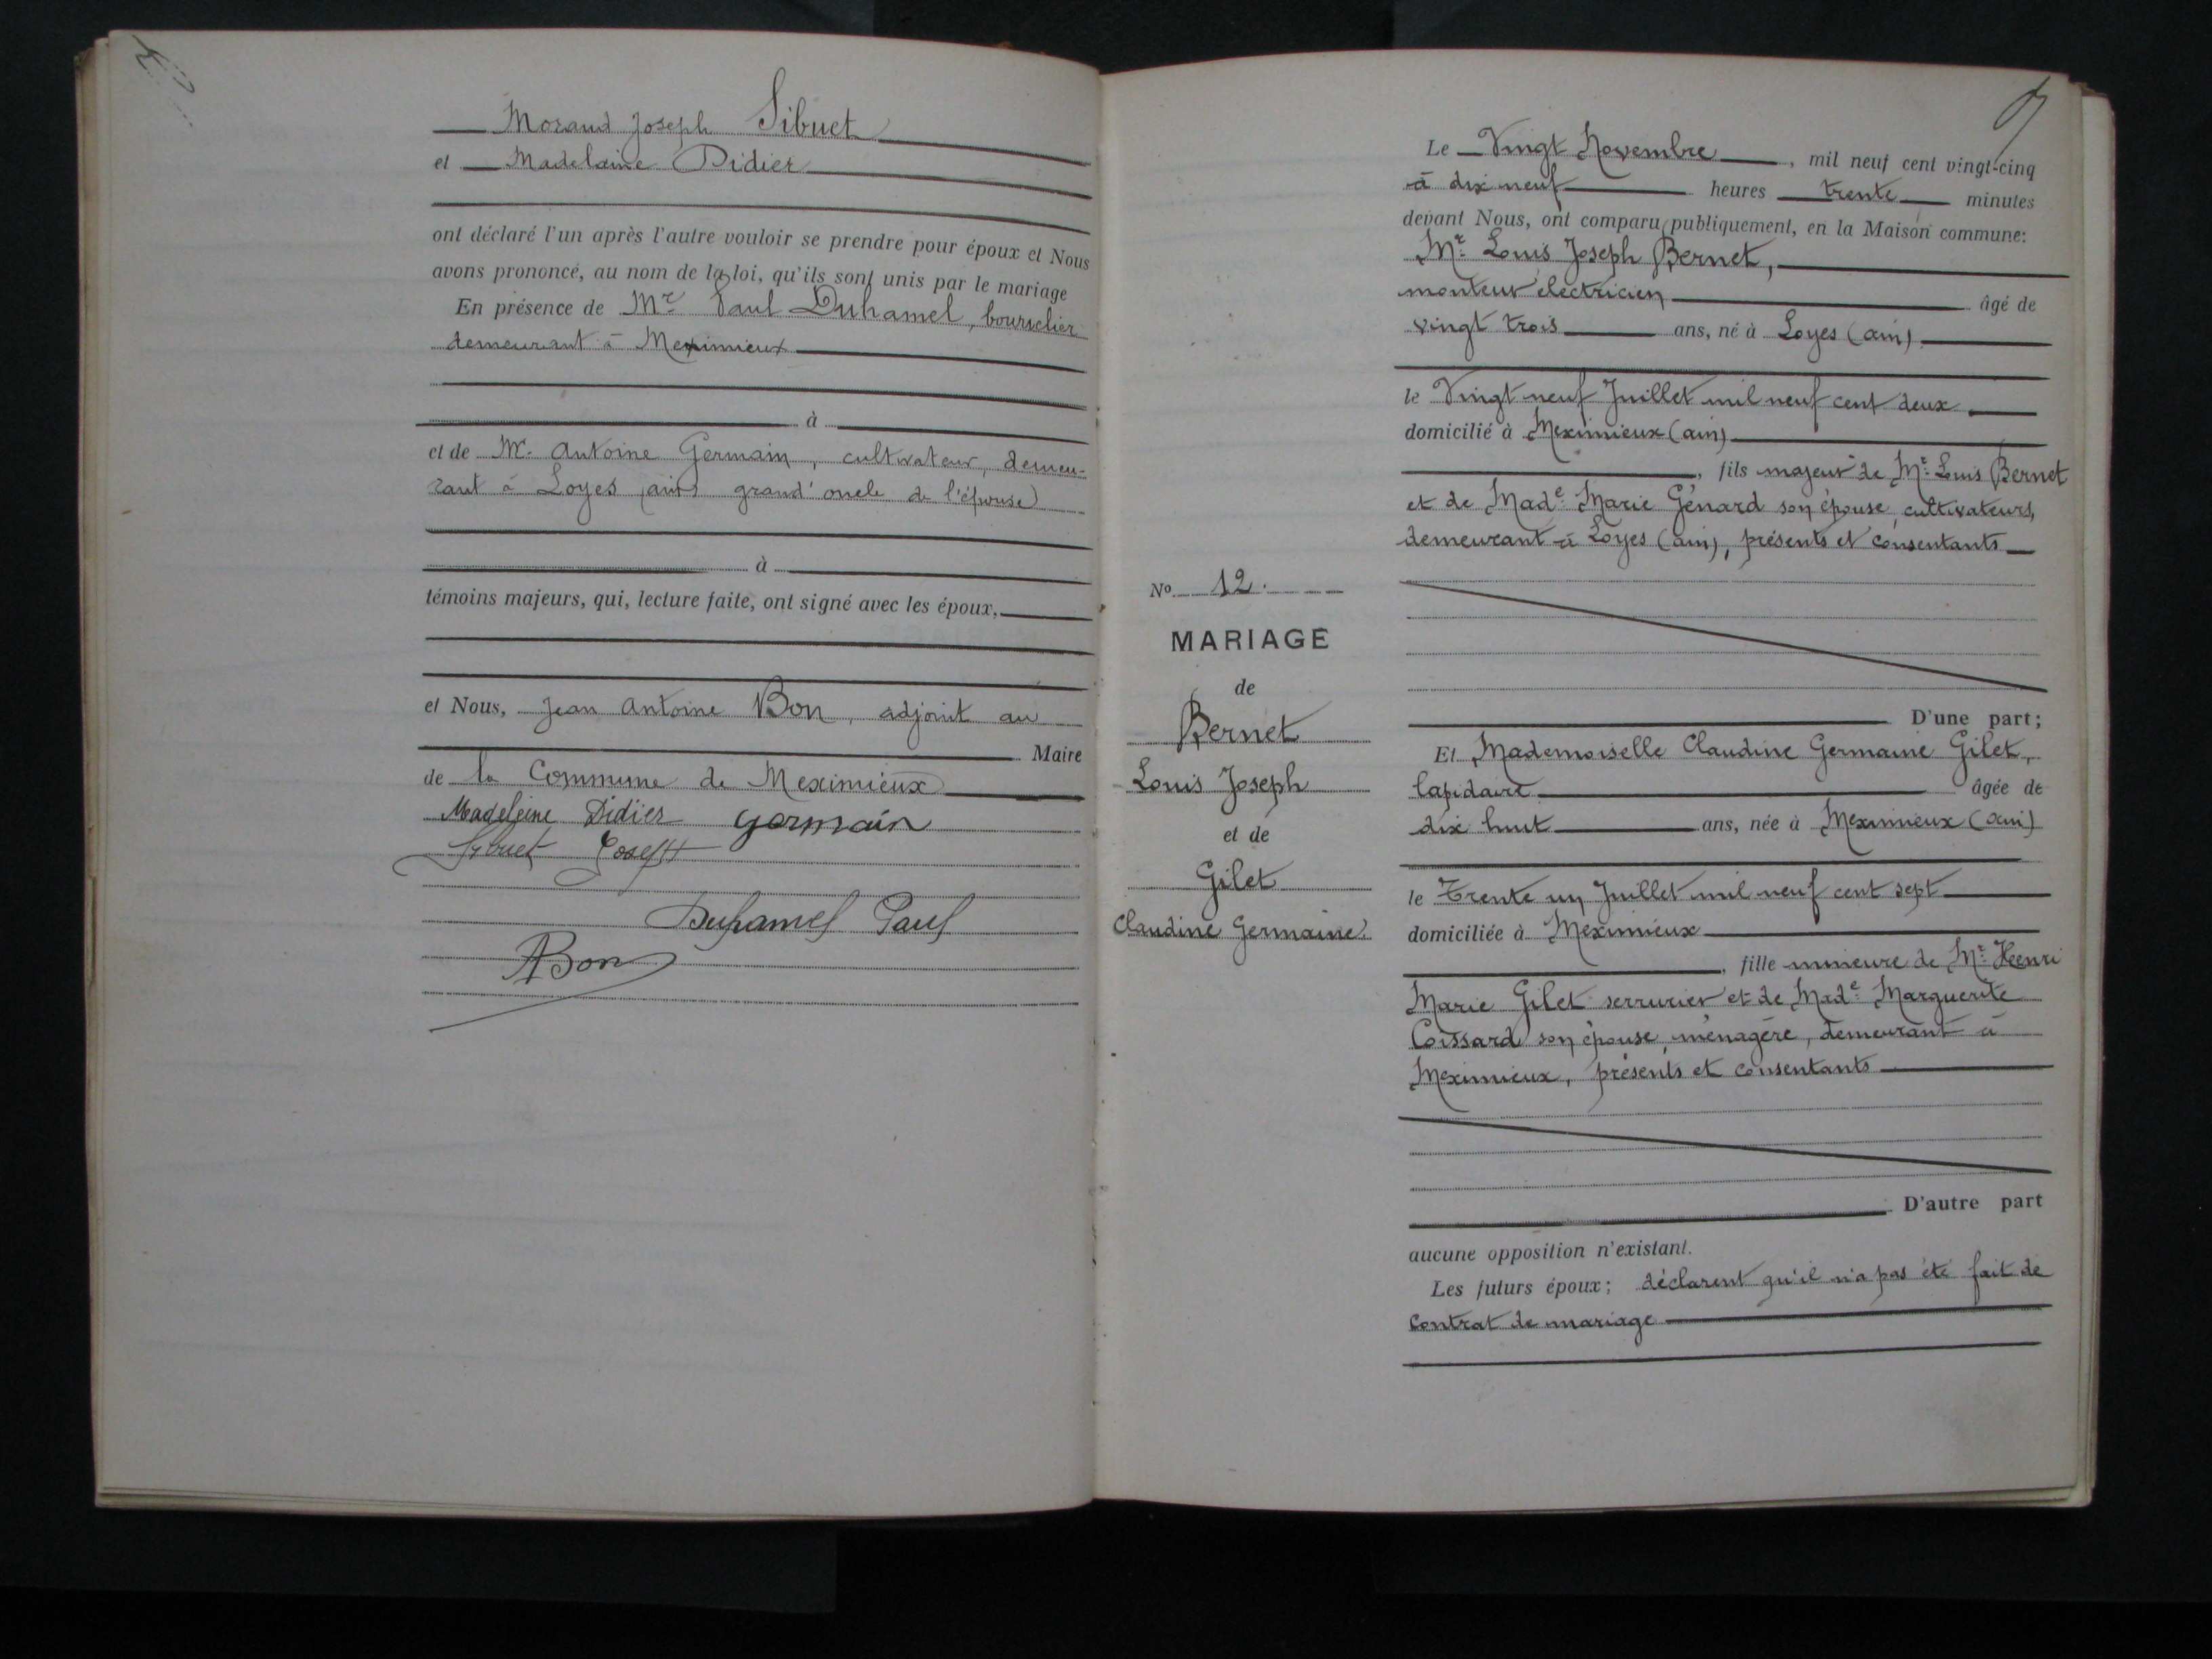 Morand Joseph Sibuet
et Madelaine Didier
ont déclaré l'un après l'autre vouloir se prendre pour époux et Nous
avons prononcé, au nom de la loi, qu'ils sont unis par le mariage
En présence de Mr Paul Duhamel, bourrelier
demeurant à Meximieux
à
et de Mr Antoine Germain, cultivateur, demeu-
rant à Loyes (ain) grand'oncle de l'épouse
à
témoins majeurs, qui, lecture faite, ont signé avec les époux,
et Nous, Jean Antoine Bon, adjoint au
Maire
de la Commune de Meximieux
Madeleine Didier Germain
Sibuet Joseph
Duhamel Paul
ABon
No 12.
MARIAGE
de
Bernet
Louis Joseph
et de
Gilet
Claudine Germaine
Le Vingt Novembre, mil neuf cent vingt-cinq
à dix neuf heures trente minutes
devant Nous, ont comparu publiquement, en la Maison commune:
Mr Louis Joseph Bernet,
monteur électricien âgé de
vingt trois ans, né à Loyes (ain)
le Vingt neuf Juillet mil neuf cent deux
domicilié à Meximieux (ain)
, fils majeur de Mr Louis Bernet
et de Made Marie Génard son épouse, cultivateurs,
demeurant à Loyes (ain), présents et consentants
D'une part;
Et Mademoiselle Claudine Germaine Gilet,
lapidaire âgée de
dix huit ans, née à Meximieux (ain)
le Trente un Juillet mil neuf cent sept
domiciliée à Meximieux
, fille mineure de Mr Henri
Marie Gilet serrurier et de Made Marguerite
Coissard son épouse, ménagère, demeurant à
Meximieux, présents et consentants
D'autre part
aucune opposition n'existant.
Les futurs époux; déclarent qu'il n'a pas été fait de
contrat de mariage